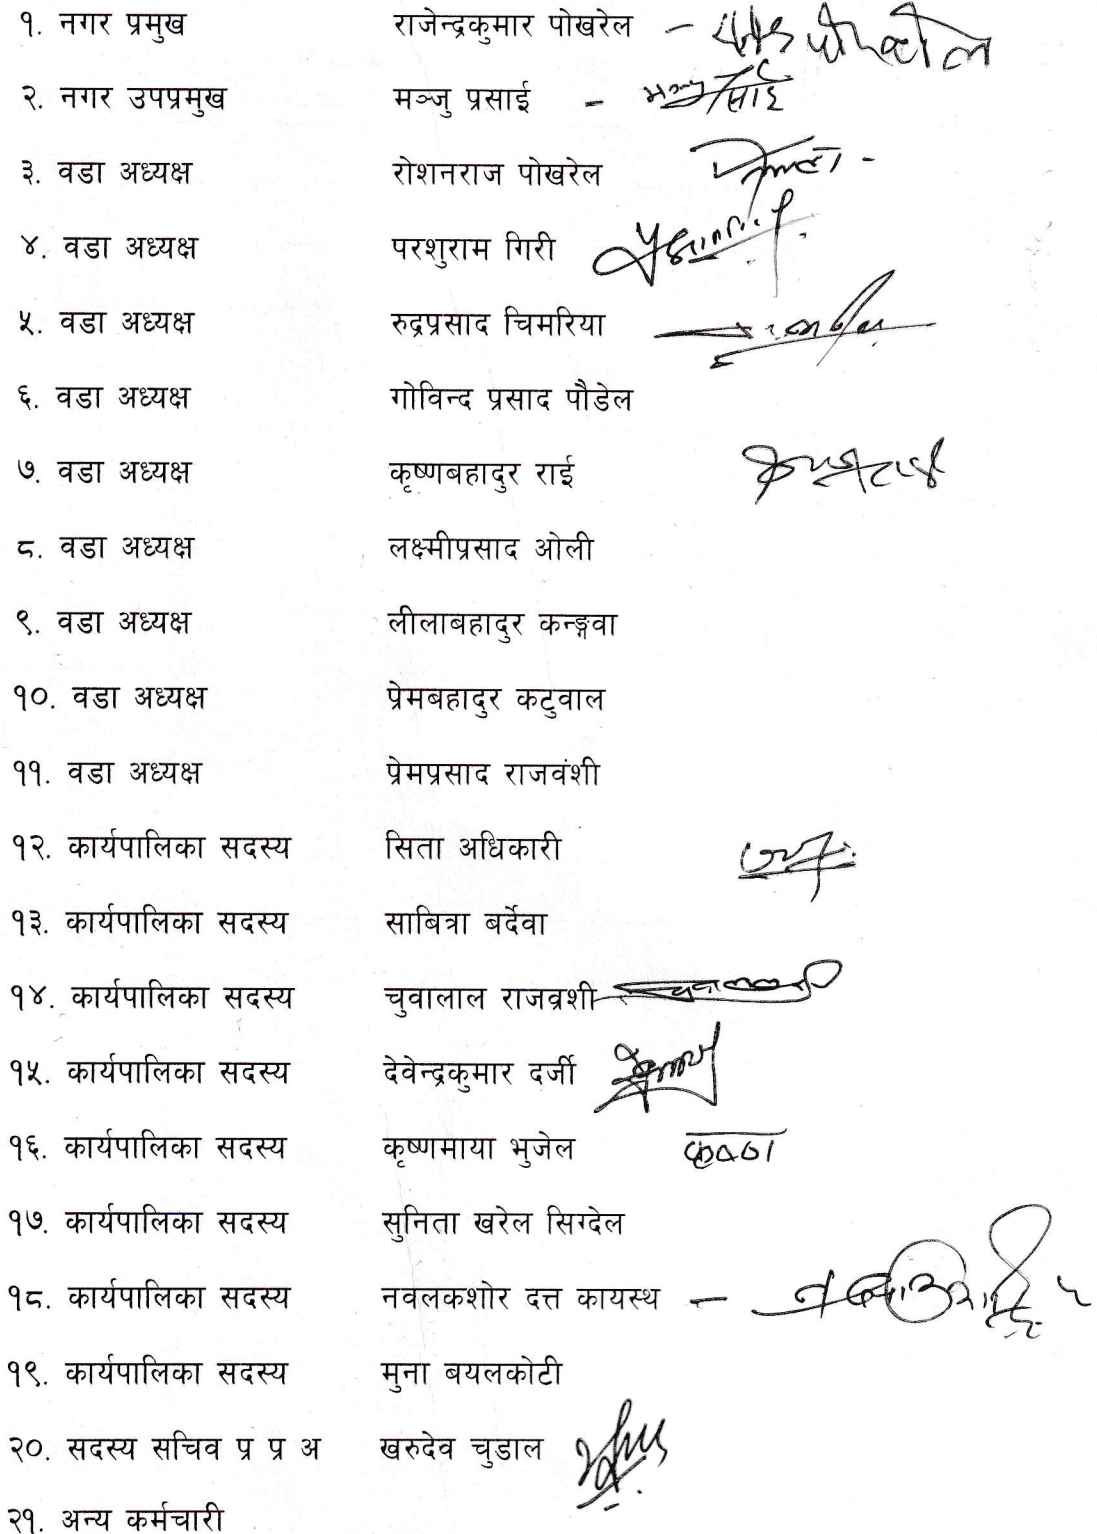 १. नगर प्रमुख राजेन्द्रकुमार पोखरेल –
२. नगर उपप्रमुख मञ्जु प्रसाई –
३. वडा अध्यक्ष रोशनराज पोखरेल
४. वडा अध्यक्ष परशुराम गिरी
५. वडा अध्यक्ष रुद्रप्रसाद चिमरिया
६. वडा अध्यक्ष गोविन्द प्रसाद पौडेल
७. वडा अध्यक्ष कृष्णबहादुर राई
८. वडा अध्यक्ष लक्ष्मीप्रसाद ओली
९. वडा अध्यक्ष लीलाबहादुर कन्ङ्गवा
१०. वडा अध्यक्ष प्रेमबहादुर कटुवाल
११. वडा अध्यक्ष प्रेमप्रसाद राजवंशी
१२. कार्यपालिका सदस्य सिता अधिकारी
१३. कार्यपालिका सदस्य साबित्रा बर्देवा
१४. कार्यपालिका सदस्य चुवालाल राजव्रशी
१५. कार्यपालिका सदस्य देवेन्द्रकुमार दर्जी
१६. कार्यपालिका सदस्य कृष्णमाया भुजेल
१७. कार्यपालिका सदस्य सुनिता खरेल सिग्देल
१८. कार्यपालिका सदस्य नवलकशोर दत्त कायस्थ –
१९. कार्यपालिका सदस्य मुना बयलकोटी
२०. सदस्य सचिव प्र प्र अ खरुदेव चुडाल
२१. अन्य कर्मचारी